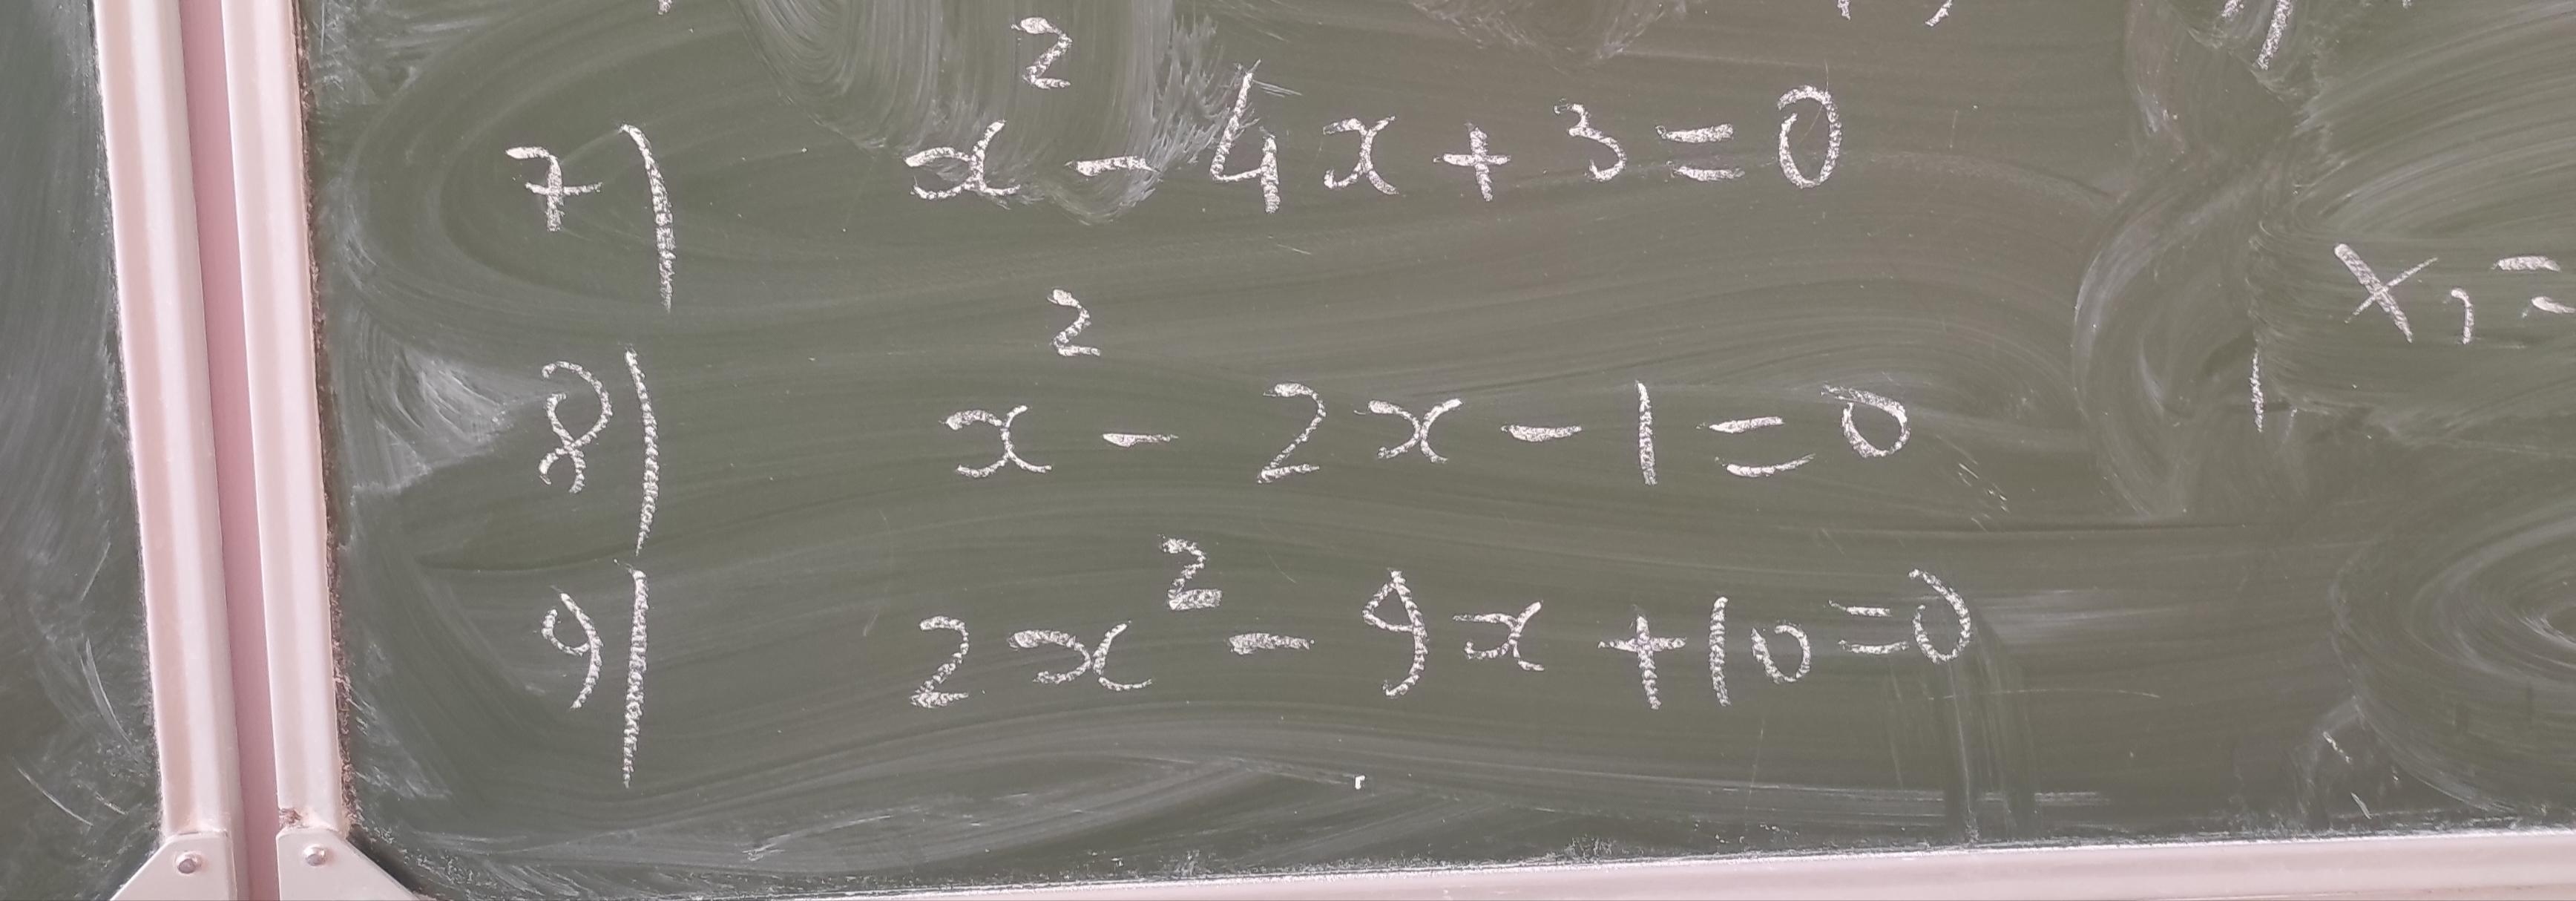 7) x² - 4x + 3 = 0
8) x² - 2x - 1 = 0
x₁ =
9) 2x² - 9x + 10 = 0